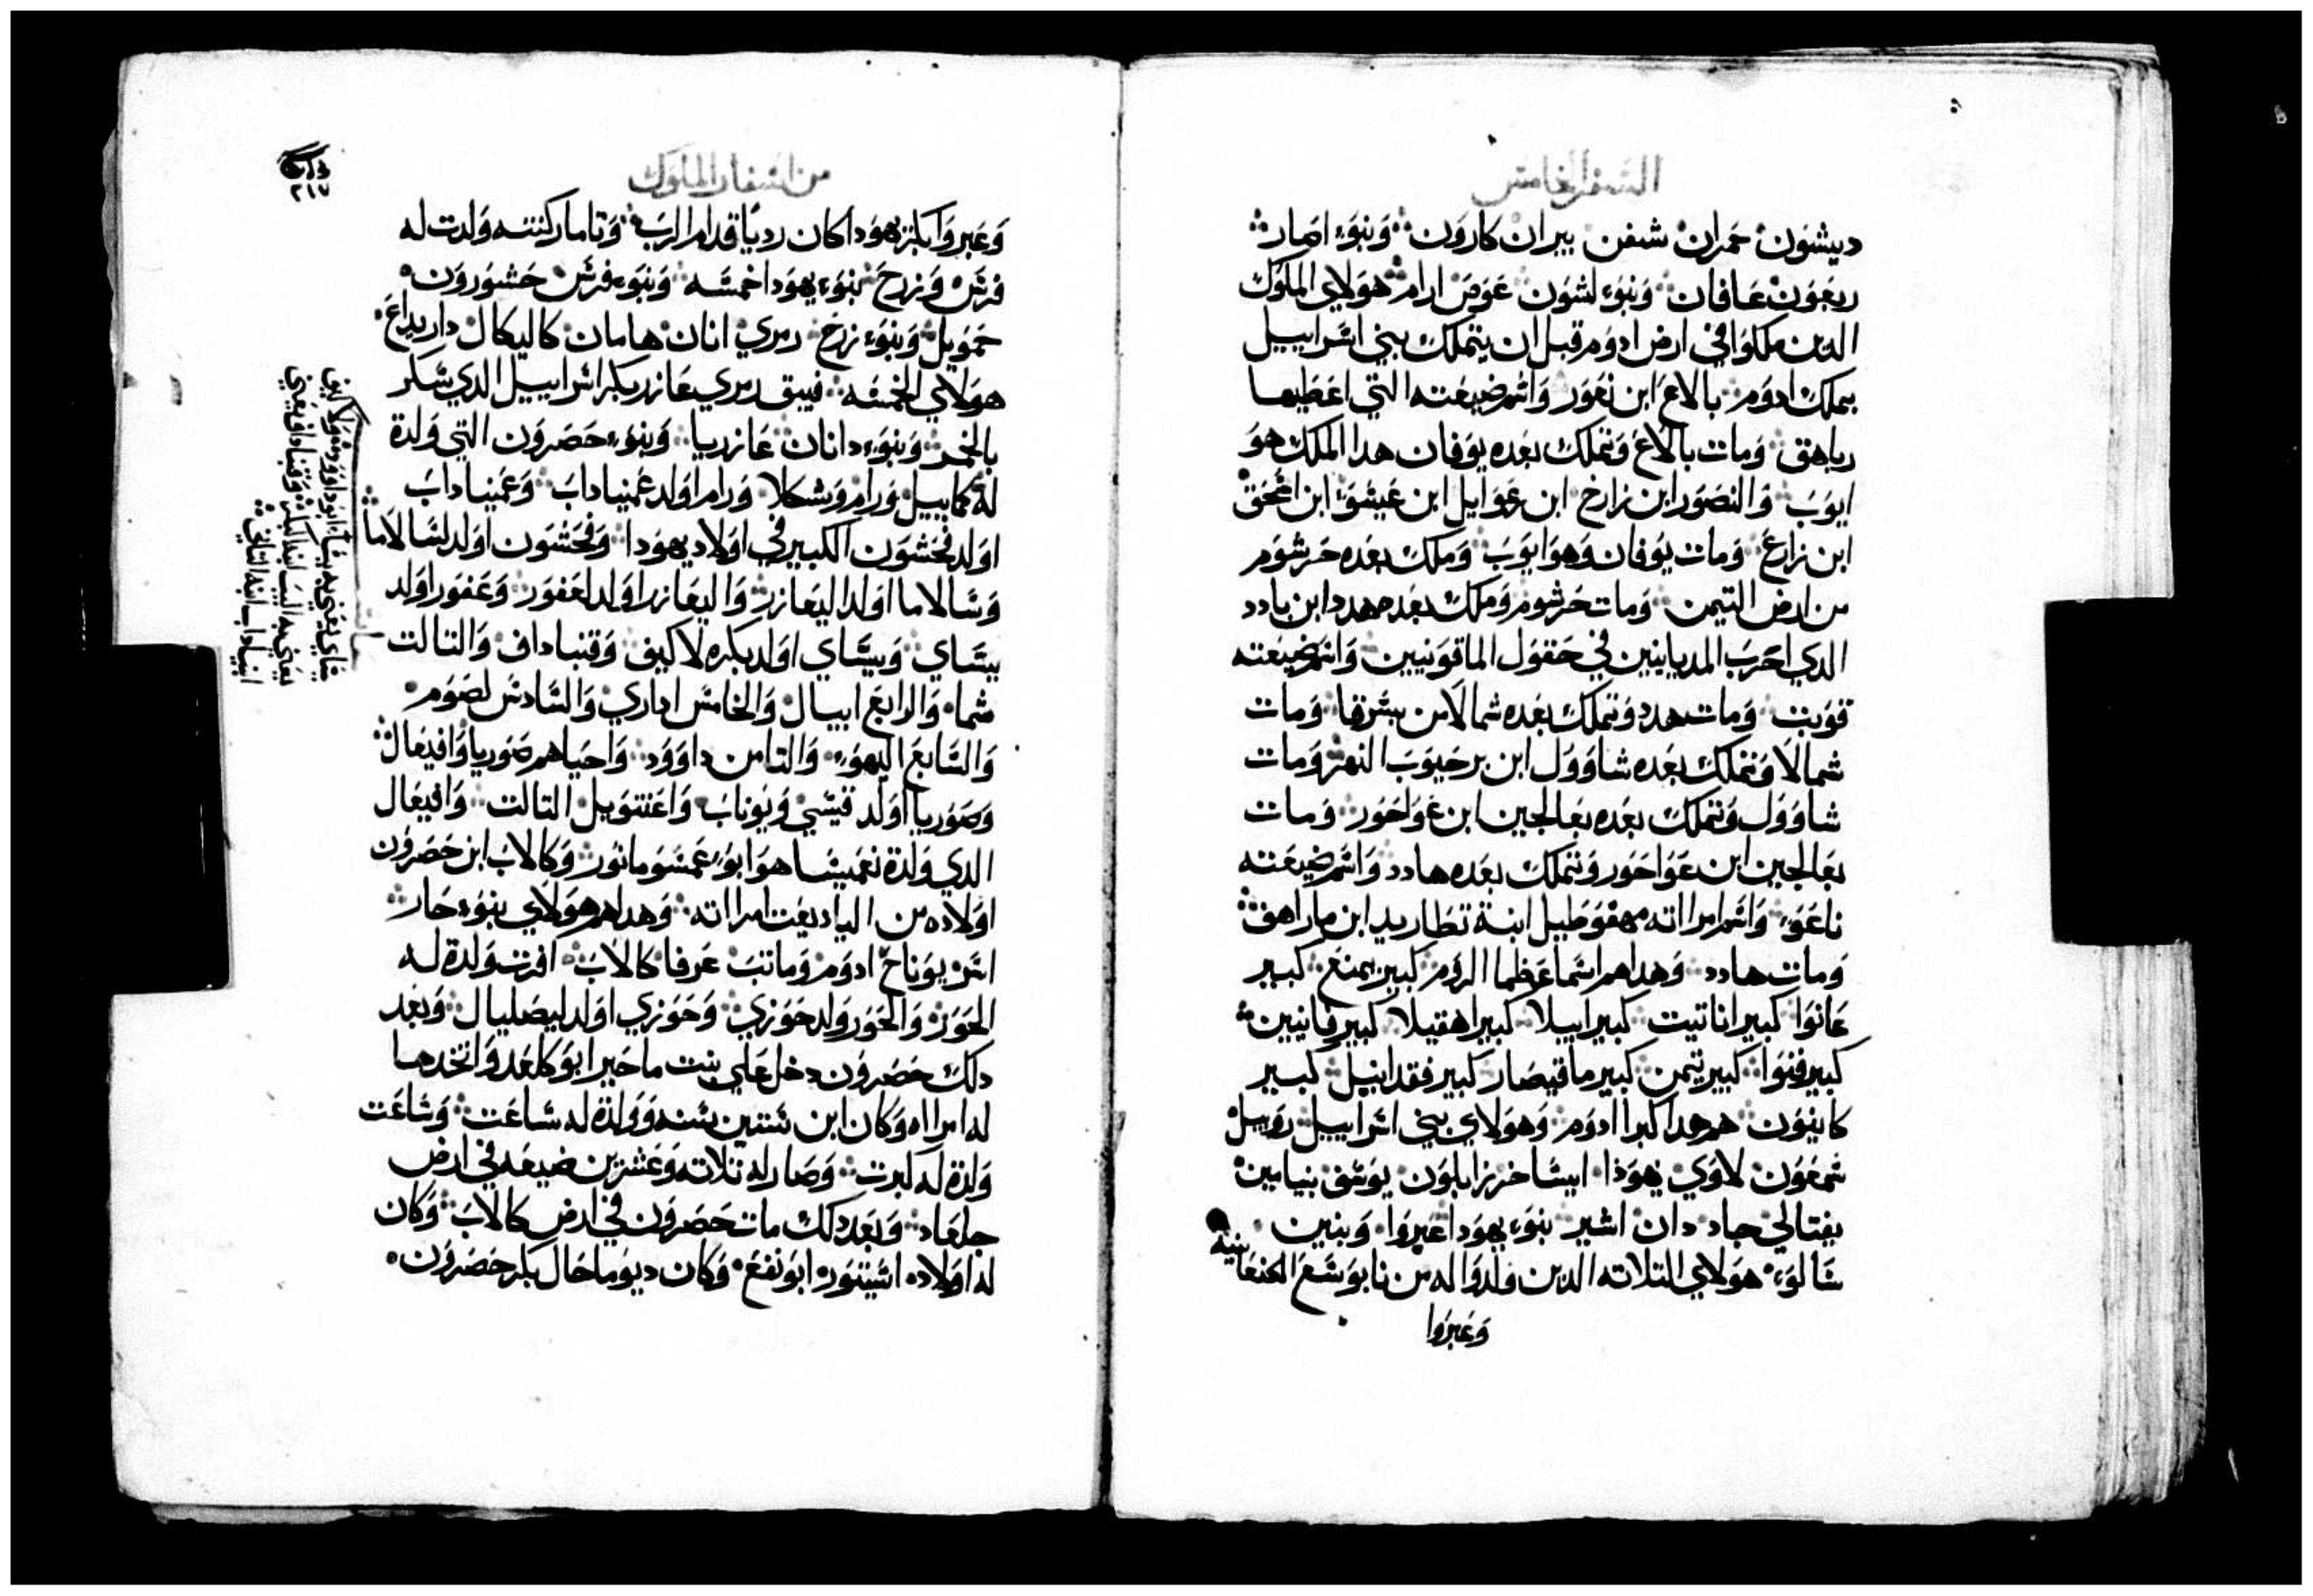 السفر الخامس
ديشون حمران شفن بيران كارون وبنوء اصار
ريعون عافان وبنوء لشون عوص ارام هولاي الملوك
الدين ملكوا في ارض ادوم قبل ان يتملك بني اسراييل
يملك ادوم بالاع ابن نعور واسم ضيعته التي اعطيها
رياهق ومات بالاع وتملك بعده يوفان هدا الملك هو
ايوب والنصور ابن زارخ ابن رعوايل ابن عيسو ابن اسحق
ابن زارع ومات يوفان وهو ايوب وملك بعده حرشوم
من ارض التيمن ومات حرشوم وملك بعده هدد ابن بادد
الدي احرب المديانيين في حقول الماقونيين واسم ضيعته
قويت ومات هدد وتملك بعده شمالا من بيشرقا ومات
شمالا وتملك بعده شاوول ابن برحيوب النهر ومات
شاوول وتملك بعده بعالجين ابن عواحور ومات
بعالجين ابن عواحور وتملك بعده هادد واسم ضيعته
ناعوء واسم امراته مهفوطيل ابنة تطاريد ابن ماراهق
ومات هادد وهداهم اسما عظما الروم كبير يمنع كبير
عانوا كبير اناتيت كبير ابيلا كبير اهقيلا كبير فانيين
كبير فنوا كبير تيمن كبير ماقيصار كبير فقدانيل كبير
كانيون هم هدا كبرا ادوم وهولاي بني اسراييل روبيل
شمعون لاوي يهودا ايساخر زابلون يوسف بنيامين
يفتالي جاد دان اشير بنوء يهودا عيروا وبنين
شالوء هولاي التلاته الدين ولدوا له من نابوشع الكنعانية
وعيروا
من اسفار الملوك
٢١٧
وعيروا بكر يهودا كان رديا قدام الرب وتامار كنته ولدت له
فرس وزرح بنوء يهودا خمسه وبنوء فرس حشورون
حمويل وبنوء زرح رمري انان هامان كاليكال داريداع
هولاي الخمسه فيبق رمري عازر بكر اسراييل الدي سكر
بالخمر وبنوء دانان عازريا وبنوء حصرون التي ولدة
له كماييل ورام وشكالا ورام اولد عمينا داب وعمينا داب
اولد فحشون الكبير في اولاد يهودا وفحشون اولد لسالاما
وسالاما اولد اليعازر واليعازر اولد لعفور وعفور اولد
ييساي وييساي اولد بكره لاكيف وقنبا داف والتالت
شما والرابع ابيال والخامس اداري والسادس لصوم
والسابع اليهوء والتامن داوود واحياهم صوريا وافيعال
وصوريا اولد قيسي ويوناب واعنتويل التالت وافيعال
الدي ولدة نعميسا هو ابوء عمسو مانور وكالاب ابن حصرون
اولاده من الياديعت امراته وهداهم هولاي بنوء حار
اشر يوناح ادوم وماتت عرفا كالاب افرت ولدة له
الحور والحور ولد حوري وحوزي اولد ليصليال وبعد
دلك حصرون دخل علي بنت ماخير ابو كلعد واتخدها
له امراه وكان ابن ستين سنه وولدة له ساعت وساعت
ولدة له لبرت وصار له تلاته وعشرين ضيعه في ارض
جلعاد وبعد دلك مات حصرون في ارض كالاب وكان
له اولاده اشيتور ابو نفع وكان ديوماحال بكر حصرون